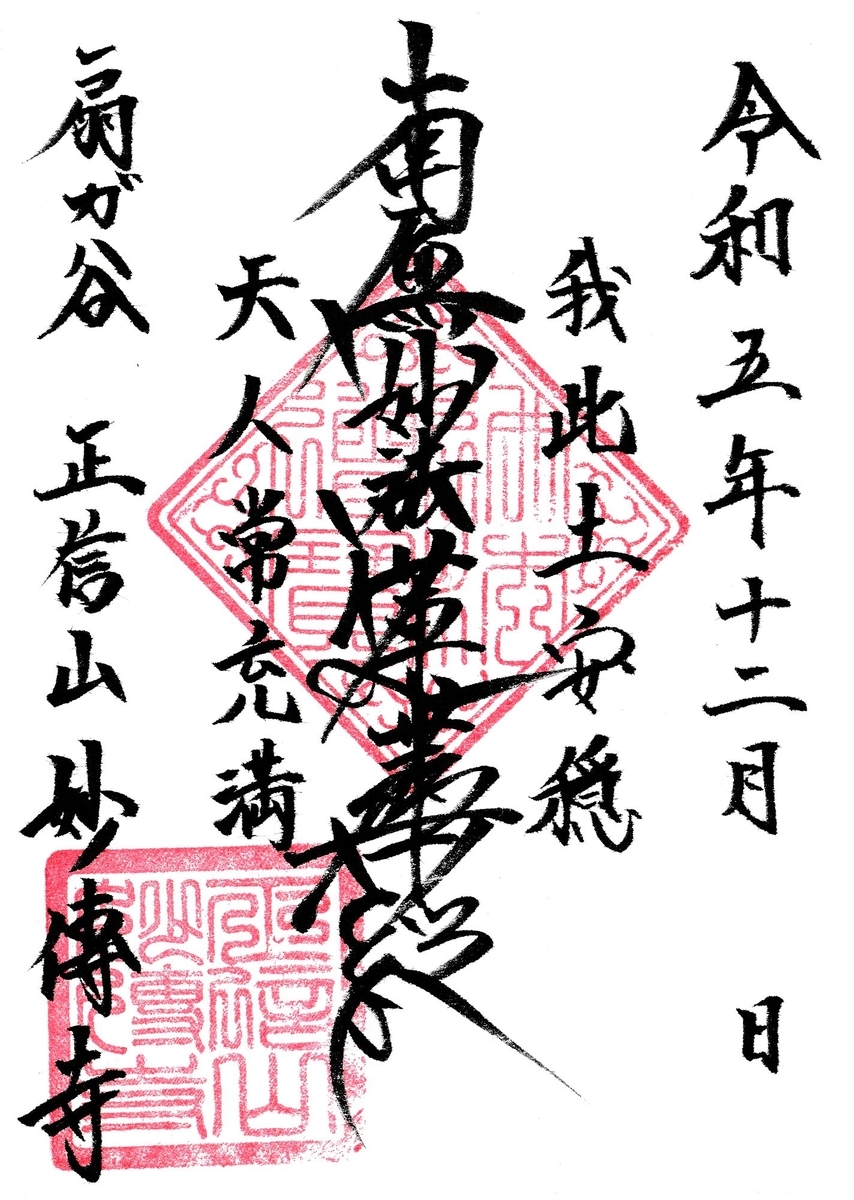 令和五年十二月 日
我此土安穏
南無妙法蓮華経
天人常充満
扇ガ谷 正信山 妙傳寺